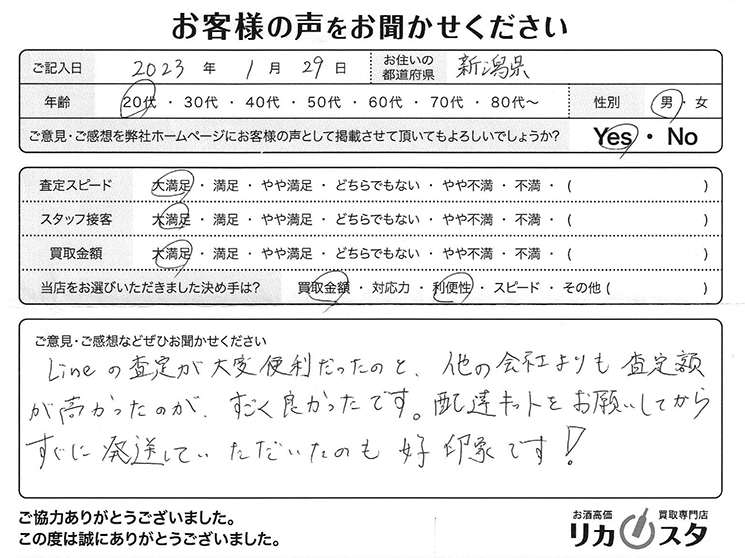 お客様の声をお聞かせください
ご記入日 2023 年 1 月 29 日 お住いの都道府県 新潟県
年齢 20代 ・ 30代 ・ 40代 ・ 50代 ・ 60代 ・ 70代 ・ 80代〜 性別 男 ・ 女
ご意見・ご感想を弊社ホームページにお客様の声として掲載させて頂いてもよろしいでしょうか? Yes ・ No
査定スピード 大満足 ・ 満足 ・ やや満足 ・ どちらでもない ・ やや不満 ・ 不満 ・ ( )
スタッフ接客 大満足 ・ 満足 ・ やや満足 ・ どちらでもない ・ やや不満 ・ 不満 ・ ( )
買取金額 大満足 ・ 満足 ・ やや満足 ・ どちらでもない ・ やや不満 ・ 不満 ・ ( )
当店をお選びいただきました決め手は? 買取金額 ・ 対応力 ・ 利便性 ・ スピード ・ その他 ( )
ご意見・ご感想などぜひお聞かせください
Lineの査定が大変便利だったのと、他の会社よりも査定額
が高かったのが、すごく良かったです。配達キットをお願いしてから
すぐに発送していただいたのも好印象です!
ご協力ありがとうございました。
この度は誠にありがとうございました。
お酒高価 買取専門店
リカスタ